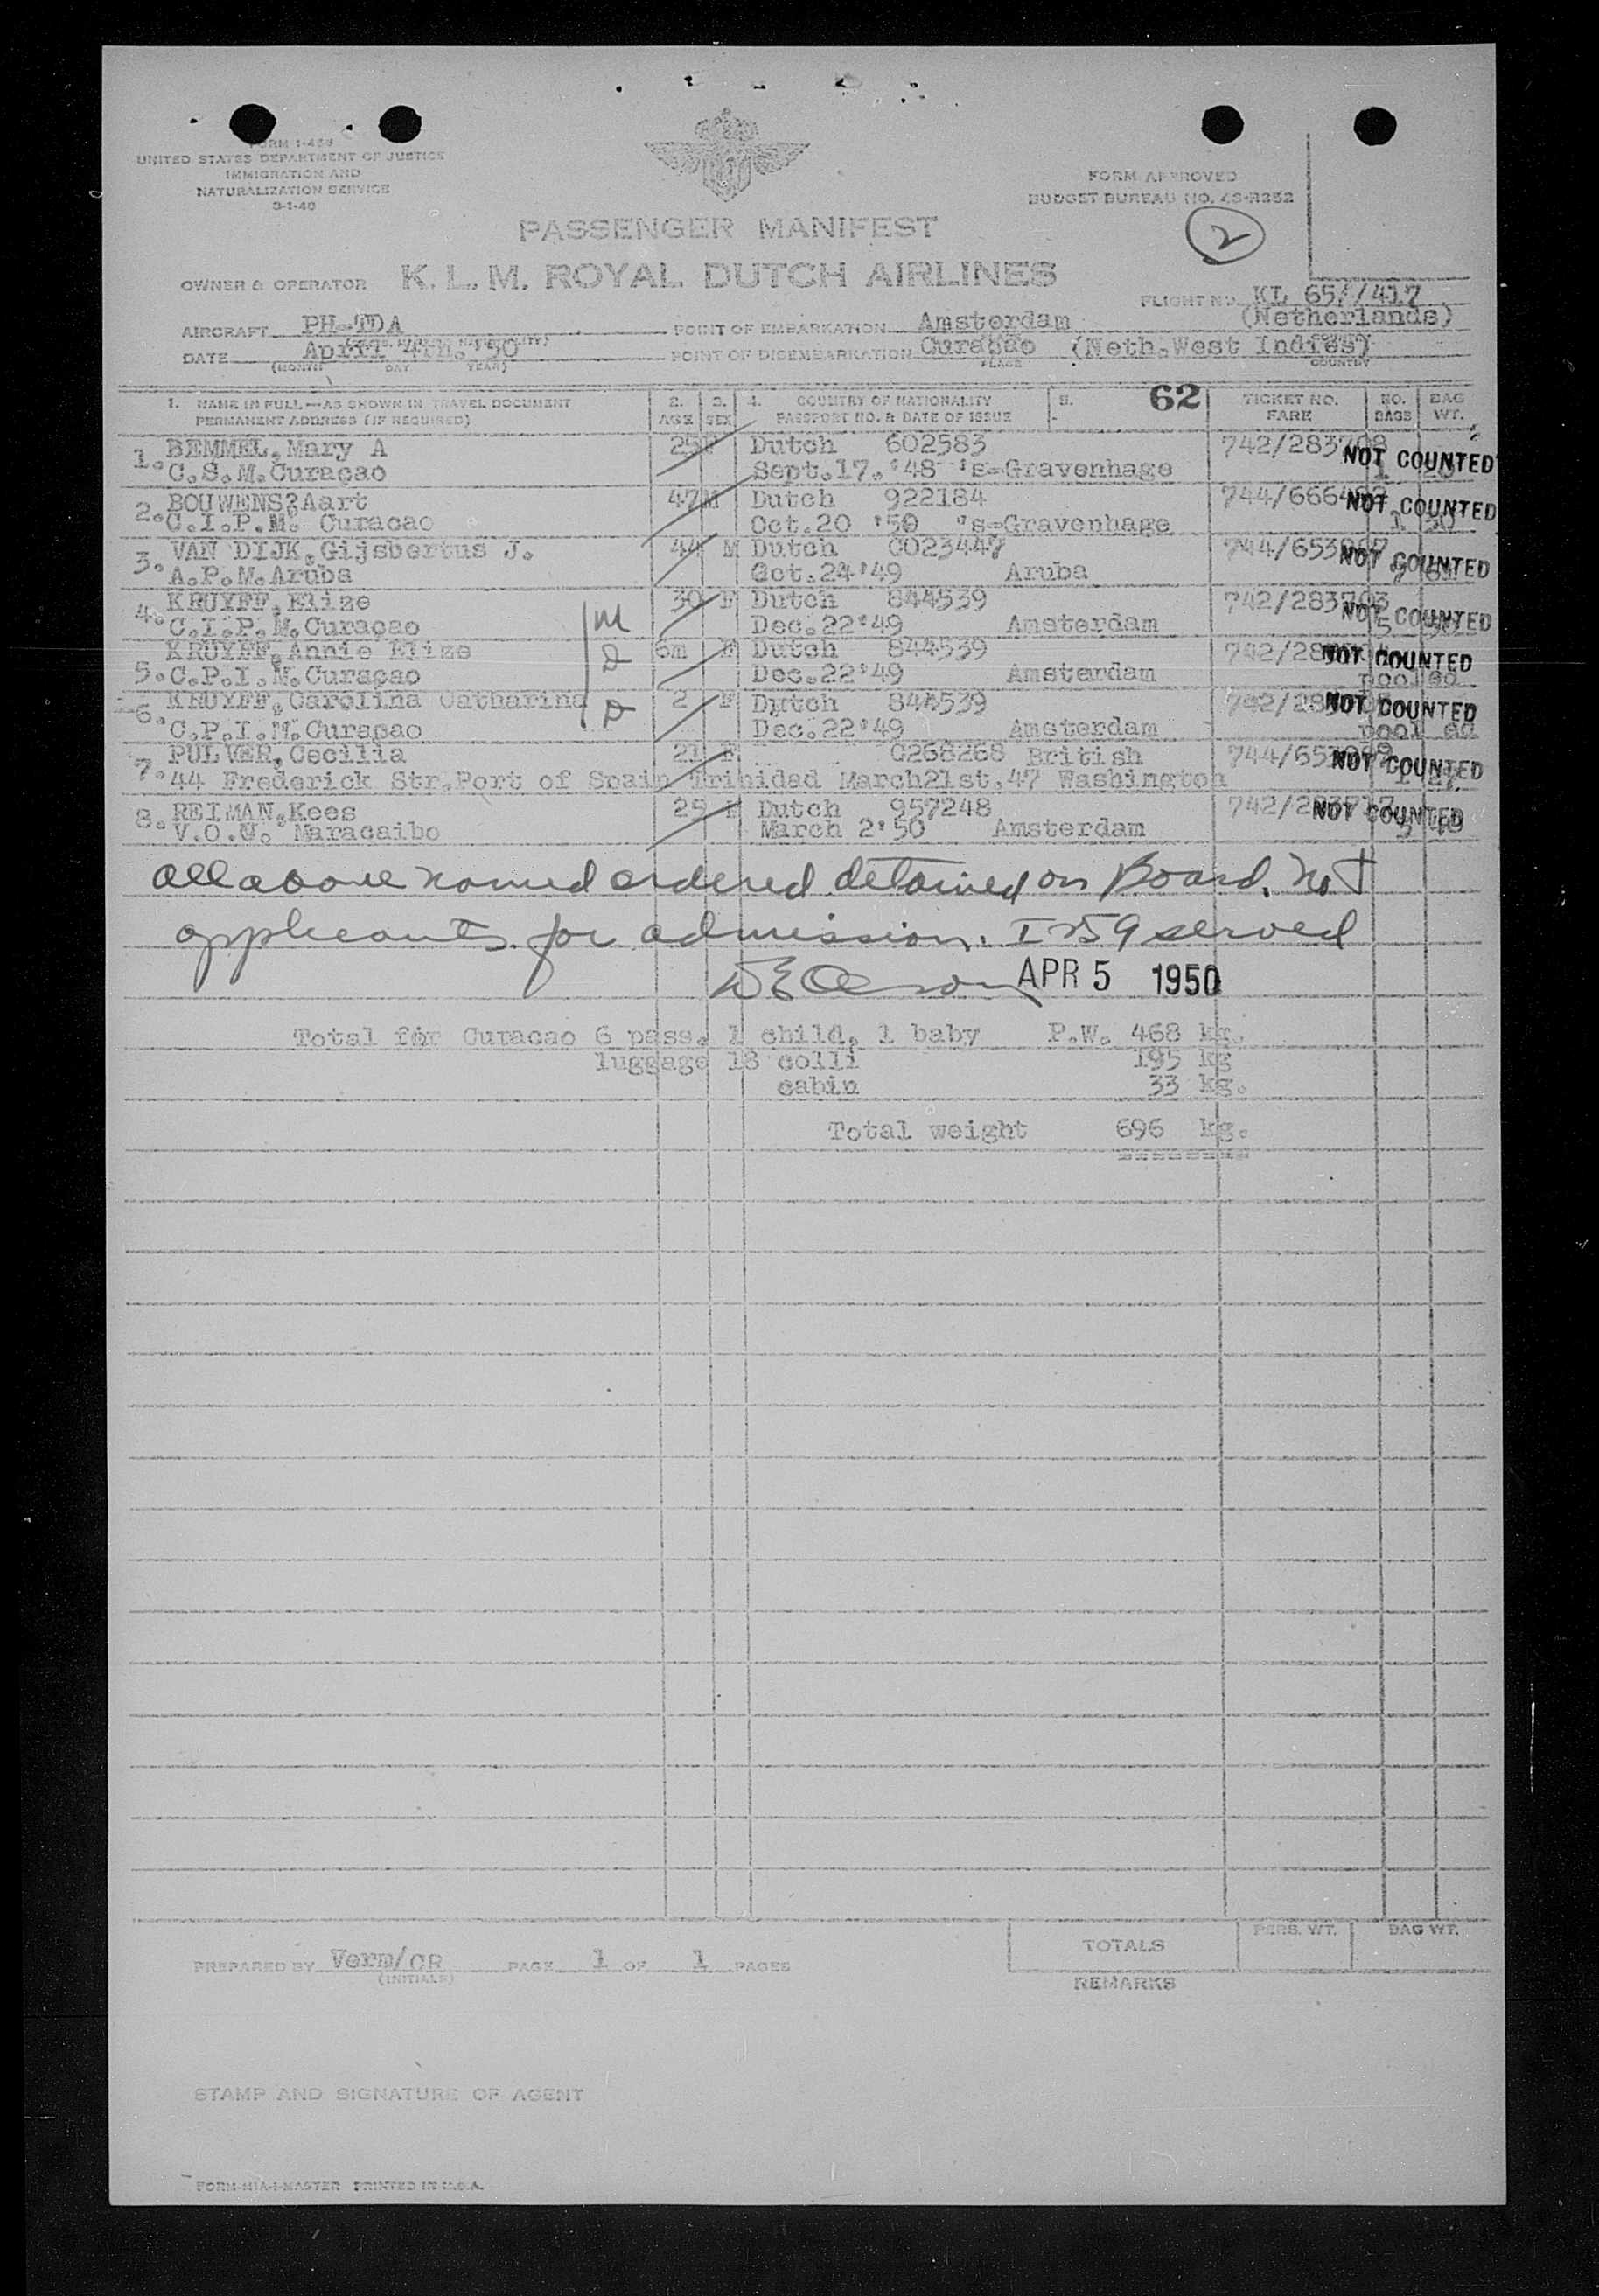 FORM I-466
UNITED STATES DEPARTMENT OF JUSTICE
IMMIGRATION AND
NATURALIZATION SERVICE
3-1-40
FORM APPROVED
BUDGET BUREAU NO. 43-R252
2
PASSENGER MANIFEST
OWNER & OPERATOR K. L. M. ROYAL DUTCH AIRLINES
FLIGHT NO. KL 65 /417
AIRCRAFT PH-TDA POINT OF EMBARKATION Amsterdam (Netherlands)
DATE April 4th. '50 POINT OF DISEMBARKATION Curaçao (Neth.West Indies)
(MONTH DAY YEAR) PLACE COUNTRY
1. NAME IN FULL—AS SHOWN IN TRAVEL DOCUMENT 2. 3. 4. COUNTRY OF NATIONALITY 5. 62 TICKET NO. NO. BAG
PERMANENT ADDRESS (IF REQUIRED) AGE SEX PASSPORT NO. & DATE OF ISSUE FARE BAGS WT.
1. BEMMEL, Mary A 25 F Dutch 602583 742/283708 NOT COUNTED
C.S.M. Curaçao Sept.17.'48 's-Gravenhage 1
2. BOUWENS?Aart 47 M Dutch 922184 744/666 NOT COUNTED
C.I.P.M. Curacao Oct.20 '50 "s-Gravenhage 1
3. VAN DIJK, Gijsbertus J. 44 M Dutch C023447 744/653 NOT COUNTED
A.P.M. Aruba Oct.24'49 Aruba
4. KRUYFF, Elize M 30 F Dutch 844539 742/283703 NOT COUNTED
C.I.P.M. Curaçao Dec.22'49 Amsterdam 5
KRUYFF, Annie Elize D 6m F Dutch 844539 742/28 NOT COUNTED
5. C.P.I.M. Curaçao Dec.22'49 Amsterdam pooled
6. KRUYFF, Carolina Catharina D 2 F Dutch 844539 742/283 NOT COUNTED
C.P.I.M. Curaçao Dec.22'49 Amsterdam pool ed
7. PULVER, Cecilia 21 F C268268 British 744/653 NOT COUNTED
44 Frederick Str.Port of Spain Trinided March21st.47 Washington
8. REIMAN, Kees 29 Dutch 957248 742/283 NOT COUNTED
V.O.C. Maracaibo March 2'50 Amsterdam
All above named ordered detained on Board. Not
applicants for admission. I 259 served
APR 5 1950
Total for Curacao 6 pass. 1 child, 1 baby P.W. 468 kg.
luggage 18 colli 195 kg
cabin 33 kg.
Total weight 696 kg.
========
PREPARED BY Verm/CR PAGE 1 OF 1 PAGES
(INITIALS)
TOTALS PERS. WT. BAG WT.
REMARKS
STAMP AND SIGNATURE OF AGENT
FORM-MIA-1-MASTER PRINTED IN U.S.A.